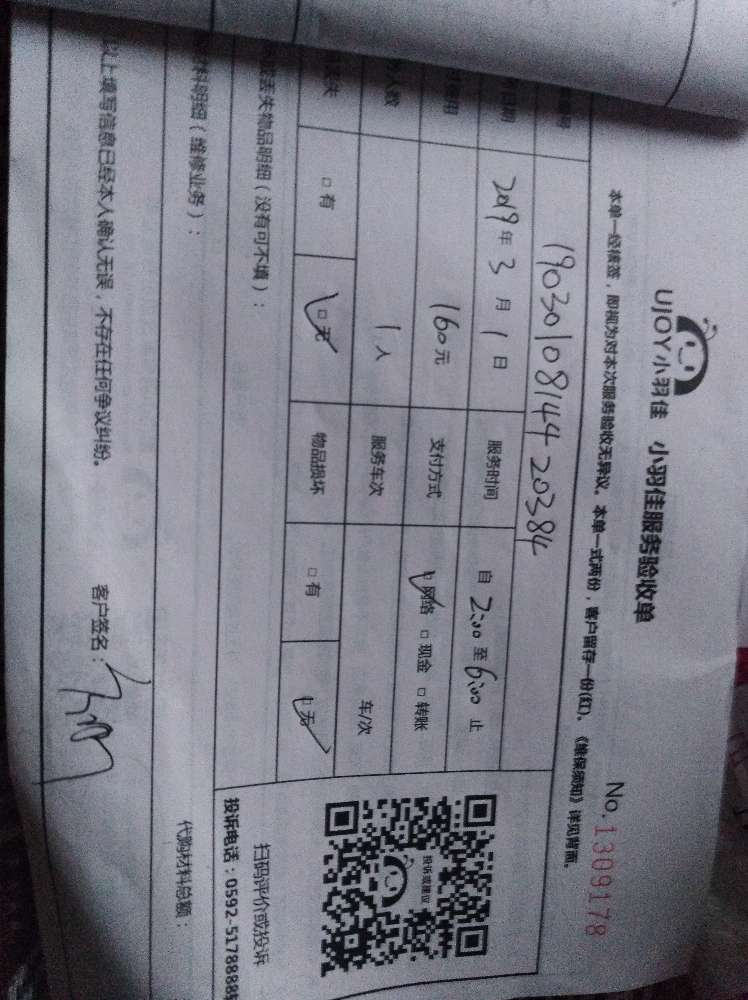 UJOY小羽佳 小羽佳服务验收单
No. 1309178
本单一经签签，即视为对本次服务验收无异议。本单一式两份，客户留存一份(红)。《维保须知》详见背面。
号 1903010814420384
日期 2019年3月1日 服务时间 自 2:00 至 6:00 止
费用 160元 支付方式 ☑网络 □现金 □转账
人数 1人 服务车次 车/次
丢失 □有 ☑无 物品损坏 □有 ☑无
投诉或建议
扫码评价或投诉
投诉电话：0592-5178888
丢失物品明细（没有可不填）：
材料明细（维修业务）： 代购材料总额：
以上填写信息已经本人确认无误，不存在任何争议纠纷。 客户签名：